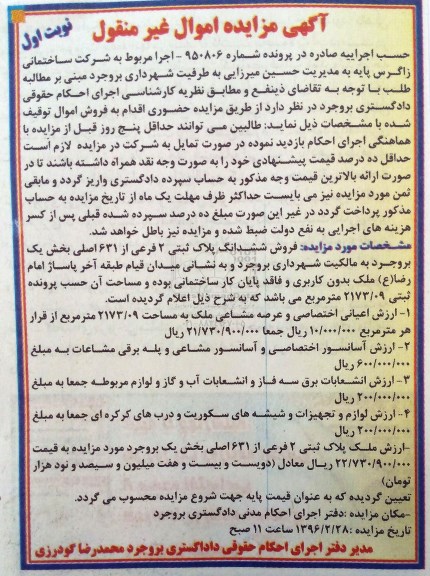 آگهی مزایده اموال غیر منقول
نوبت اول
حسب اجراییه صادره در پرونده شماره ۹۵۰۸۰۶ - اجرا مربوط به شرکت ساختمانی
زاگرس پایه به مدیریت حسین میرزایی به طرفیت شهرداری بروجرد مبنی بر مطالبه
طلب با توجه به تقاضای ذینفع و مطابق نظریه کارشناسی اجرای احکام حقوقی
دادگستری بروجرد در نظر دارد از طریق مزایده حضوری اقدام به فروش اموال توقیف
شده با مشخصات ذیل نماید: طالبین می توانند حداقل پنج روز قبل از مزایده با
هماهنگی اجرای احکام بازدید نموده در صورت تمایل به شرکت در مزایده لازم است
حداقل ده درصد قیمت پیشنهادی خود را به صورت وجه نقد همراه داشته باشند تا در
صورت ارائه بالاترین قیمت وجه مذکور به حساب سپرده دادگستری واریز گردد و مابقی
ثمن مورد مزایده نیز می بایست حداکثر ظرف مهلت یک ماه از تاریخ مزایده به حساب
مذکور پرداخت گردد در غیر این صورت مبلغ ده درصد سپرده شده قبلی پس از کسر
هزینه های اجرایی به نفع دولت ضبط شده و مزایده نیز باطل خواهد شد.
مشخصات مورد مزایده: فروش ششدانگ پلاک ثبتی ۲ فرعی از ۶۳۱ اصلی بخش یک
بروجرد به مالکیت شهرداری بروجرد و به نشانی میدان قیام طبقه آخر پاساژ امام
رضا(ع) ملک بدون کاربری و فاقد پایان کار ساختمانی بوده و مساحت آن حسب پرونده
ثبتی ۲۱۷۳/۰۹ مترمربع می باشد که به شرح ذیل اعلام گردیده است.
۱- ارزش اعیانی اختصاصی و عرصه مشاعی ملک به مساحت ۲۱۷۳/۰۹ مترمربع از قرار
هر مترمربع ۱۰/۰۰۰/۰۰۰ ریال جمعا ۲۱/۷۳۰/۹۰۰/۰۰۰ ریال
۲- ارزش آسانسور اختصاصی و آسانسور مشاعی و پله برقی مشاعات به مبلغ
۶۰۰/۰۰۰/۰۰۰ ریال
۳- ارزش انشعابات برق سه فاز و انشعابات آب و گاز و لوازم مربوطه جمعا به مبلغ
۲۰۰/۰۰۰/۰۰۰ ریال
۴- ارزش لوازم و تجهیزات و شیشه های سکوریت و درب های کرکره ای جمعا به مبلغ
۲۰۰/۰۰۰/۰۰۰ ریال
-ارزش ملک پلاک ثبتی ۲ فرعی از ۶۳۱ اصلی بخش یک بروجرد مورد مزایده به قیمت
۲۲/۷۳۰/۹۰۰/۰۰۰ ریال معادل (دویست و بیست و هفت میلیون و سیصد و نود هزار
تومان)
تعیین گردیده که به عنوان قیمت پایه جهت شروع مزایده محسوب می گردد.
-مکان مزایده :دفتر اجرای احکام مدنی دادگستری بروجرد
تاریخ مزایده :۱۳۹۶/۲/۲۸ ساعت ۱۱ صبح
مدیر دفتر اجرای احکام حقوقی داداگستری بروجرد محمدرضا گودرزی